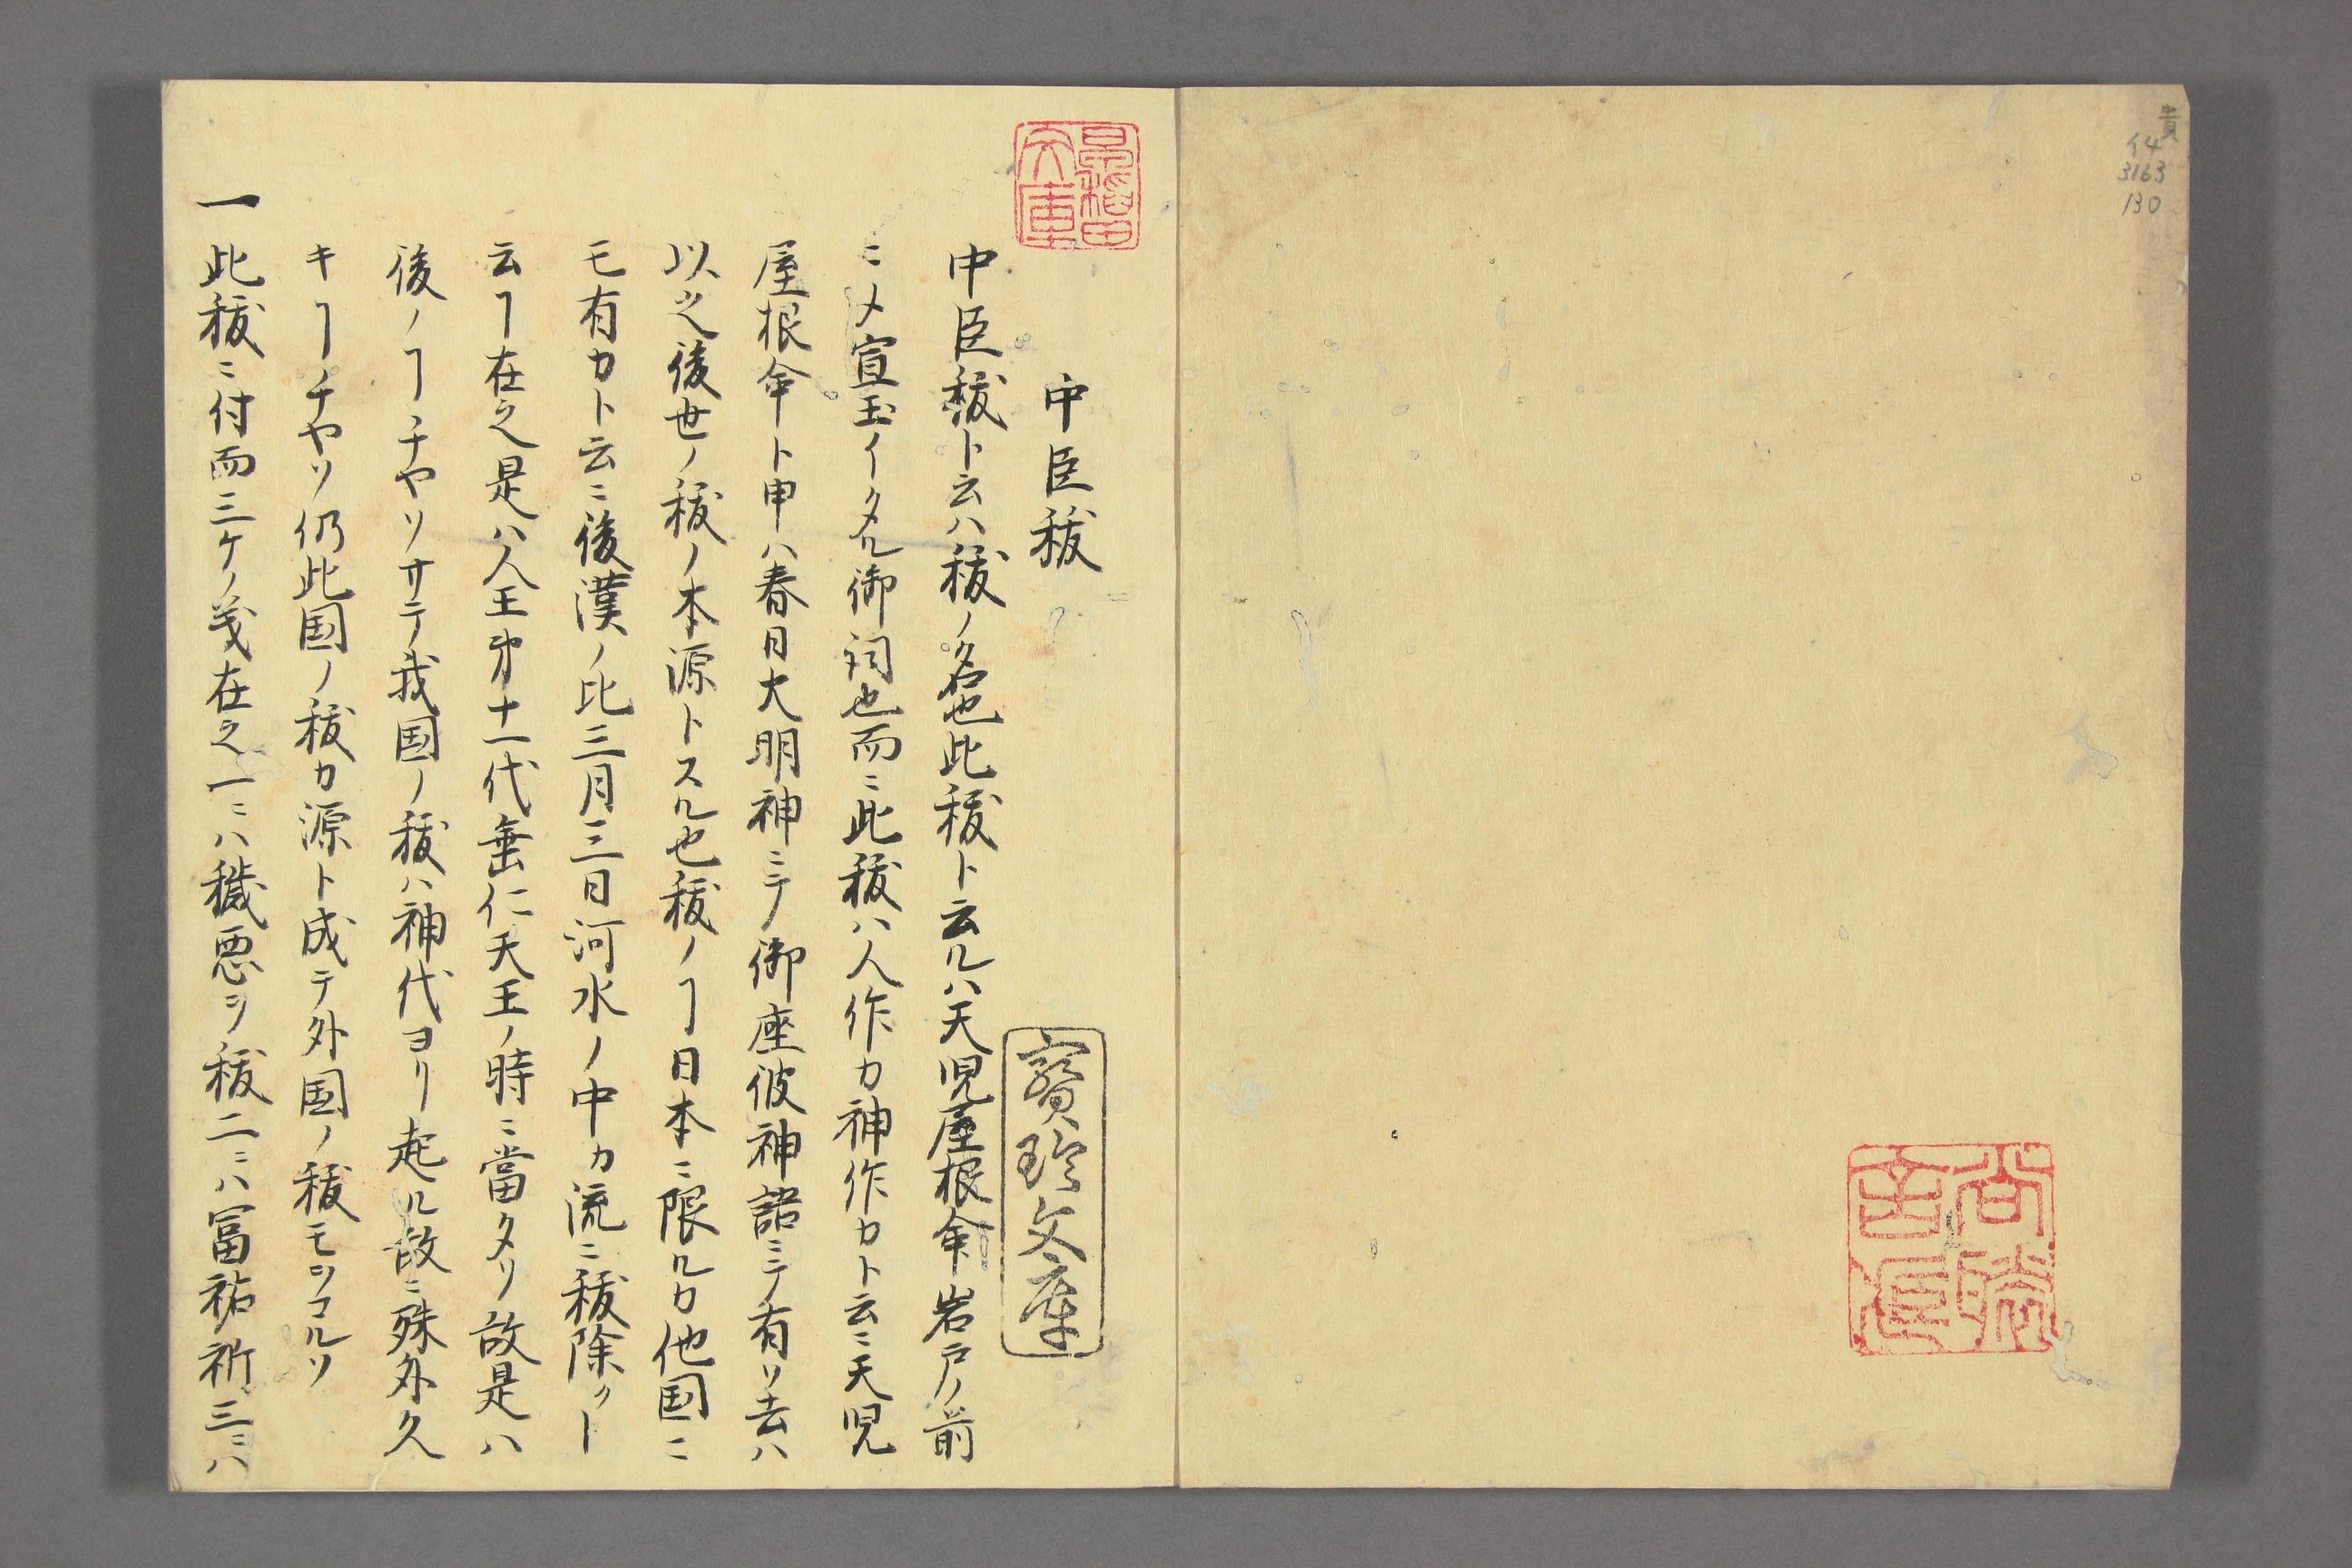 貴
イ4
3163
130
中臣秡
中臣秡ト云ハ秡ノ名也此秡ト云ルハ天児屋根命岩戸ノ前
ニメ宣玉イタル御詞也而ニ此秡ハ人作カ神作カト云ニ天児
屋根命ト申ハ春日大明神ニテ御座彼神語ニテ有リ去ハ
以之後世ノ秡ノ本源トスル也秡ノヿ日本ニ限ルカ他国ニ
モ有カト云ニ後漢ノ比三月三日河水ノ中カ流ニ秡除クト
云ヿ在之是ハ人王第十一代垂仁天王ノ時ニ當タリ故是ハ
後ノヿチヤソサテ我国ノ秡ハ神代ヨリ起ル故ニ殊外久
キヿチヤソ仍此国ノ秡カ源ト成テ外国ノ秡モヲコルソ
一此秡ニ付而三ケノ義在之一ニハ穢悪ヲ秡二ニハ冨祐祈三ニハ
早稲田文庫
寳玲文庫